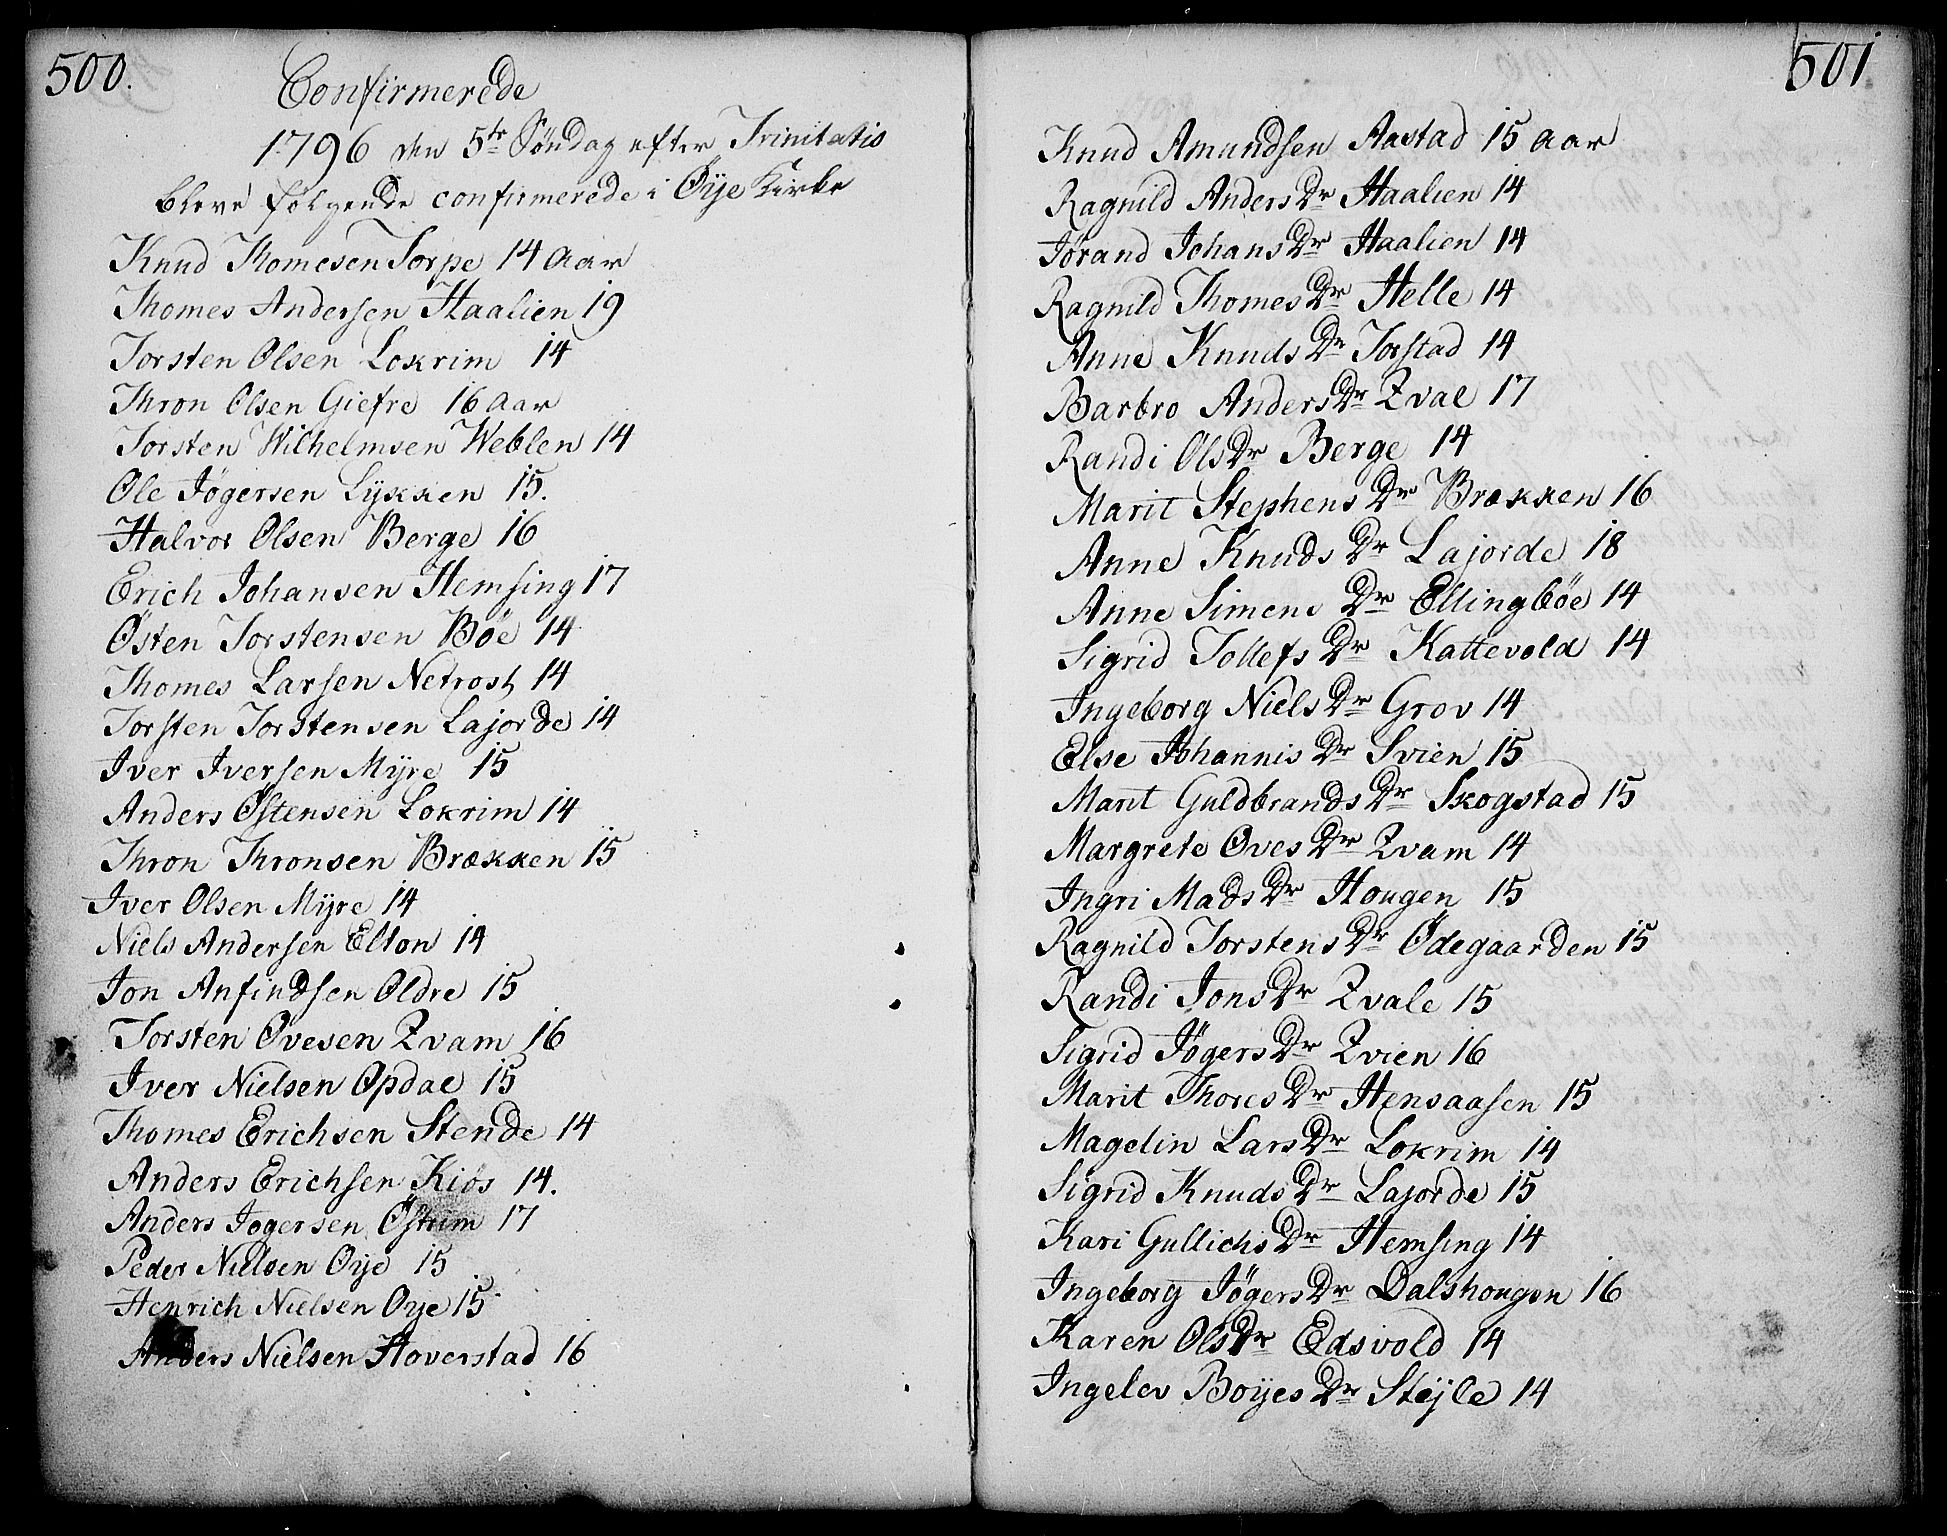 500.
Confirmerede
1796 den 5te Søndag efter Trinitatis
bleve følgende confirmerede i Øÿe Kirke
Knud Thomesen Torpe 14 Aar
Thomes Andersen Haalien 19
Torsten Olsen Lokrim 14
Thron Olsen Giefre 16 Aar
Torsten Wilhelmsen Weblen 14
Ole Jøgersen Lÿkken 15.
Halvor Olsen Berge 16
Erich Johansen Hemsing 17
Østen Torstensen Bøe 14
Thomes Larsen Nefrost 14
Torsten Torstensen Lajorde 14
Iver Iversen Mÿre 15
Anders Østensen Lokrim 14
Thron Thronsen Brækken 15
Iver Olsen Mÿre 14
Niels Andersen Elton 14
Jon Anfindsen Oldre 15
Torsten Ovesen Qvam 16
Iver Nielsen Opdal 15
Thomes Erichsen Stende 14
Anders Erichsen Kiøs 14.
Anders Jøgersen Østrim 17
Peder Nielsen Øÿe 15
Henrich Nielsen Øye 15
Anders Nielsen Hoverstad 16
501
Knud Amundsen Aastad 15 Aar
Ragnild Anders Dr Haalien 14
Jørand Johans Dr Haalien 14
Ragnild Thomes Dr Helle 14
Anne Knuds Dr Torstad 14
Barbro Anders Dr Qvale 17
Randi Ols Dr Berge 14
Marit Stephens Dr Brækken 16
Anne Knuds Dr Lajorde 18
Anne Simens Dr Ellingbøe 14
Sigrid Tollefs Dr Kattevold 14
Ingeborg Niels Dr Grov 14
Else Johannis Dr Svien 15
Marit Guldbrands Dr Skogstad 15
Margrete Oves Dr Qvam 14
Ingri Mads Dr Hougen 15
Ragnild Torstens Dr Ødegaarden 15
Randi Jons Dr Qvale 15
Sigrid Jøgers Dr Qvien 16
Marit Thores Dr Hensaasen 15
Magelin Lars Dr Lokrim 14
Sigrid Knuds Dr Lajorde 15
Kari Gullichs Dr Hemsing 14
Ingeborg Jøgers Dr Dalshougen 16
Karen Ols Dr Edsvold 14
Ingelev Boÿes Dr Steÿle 14